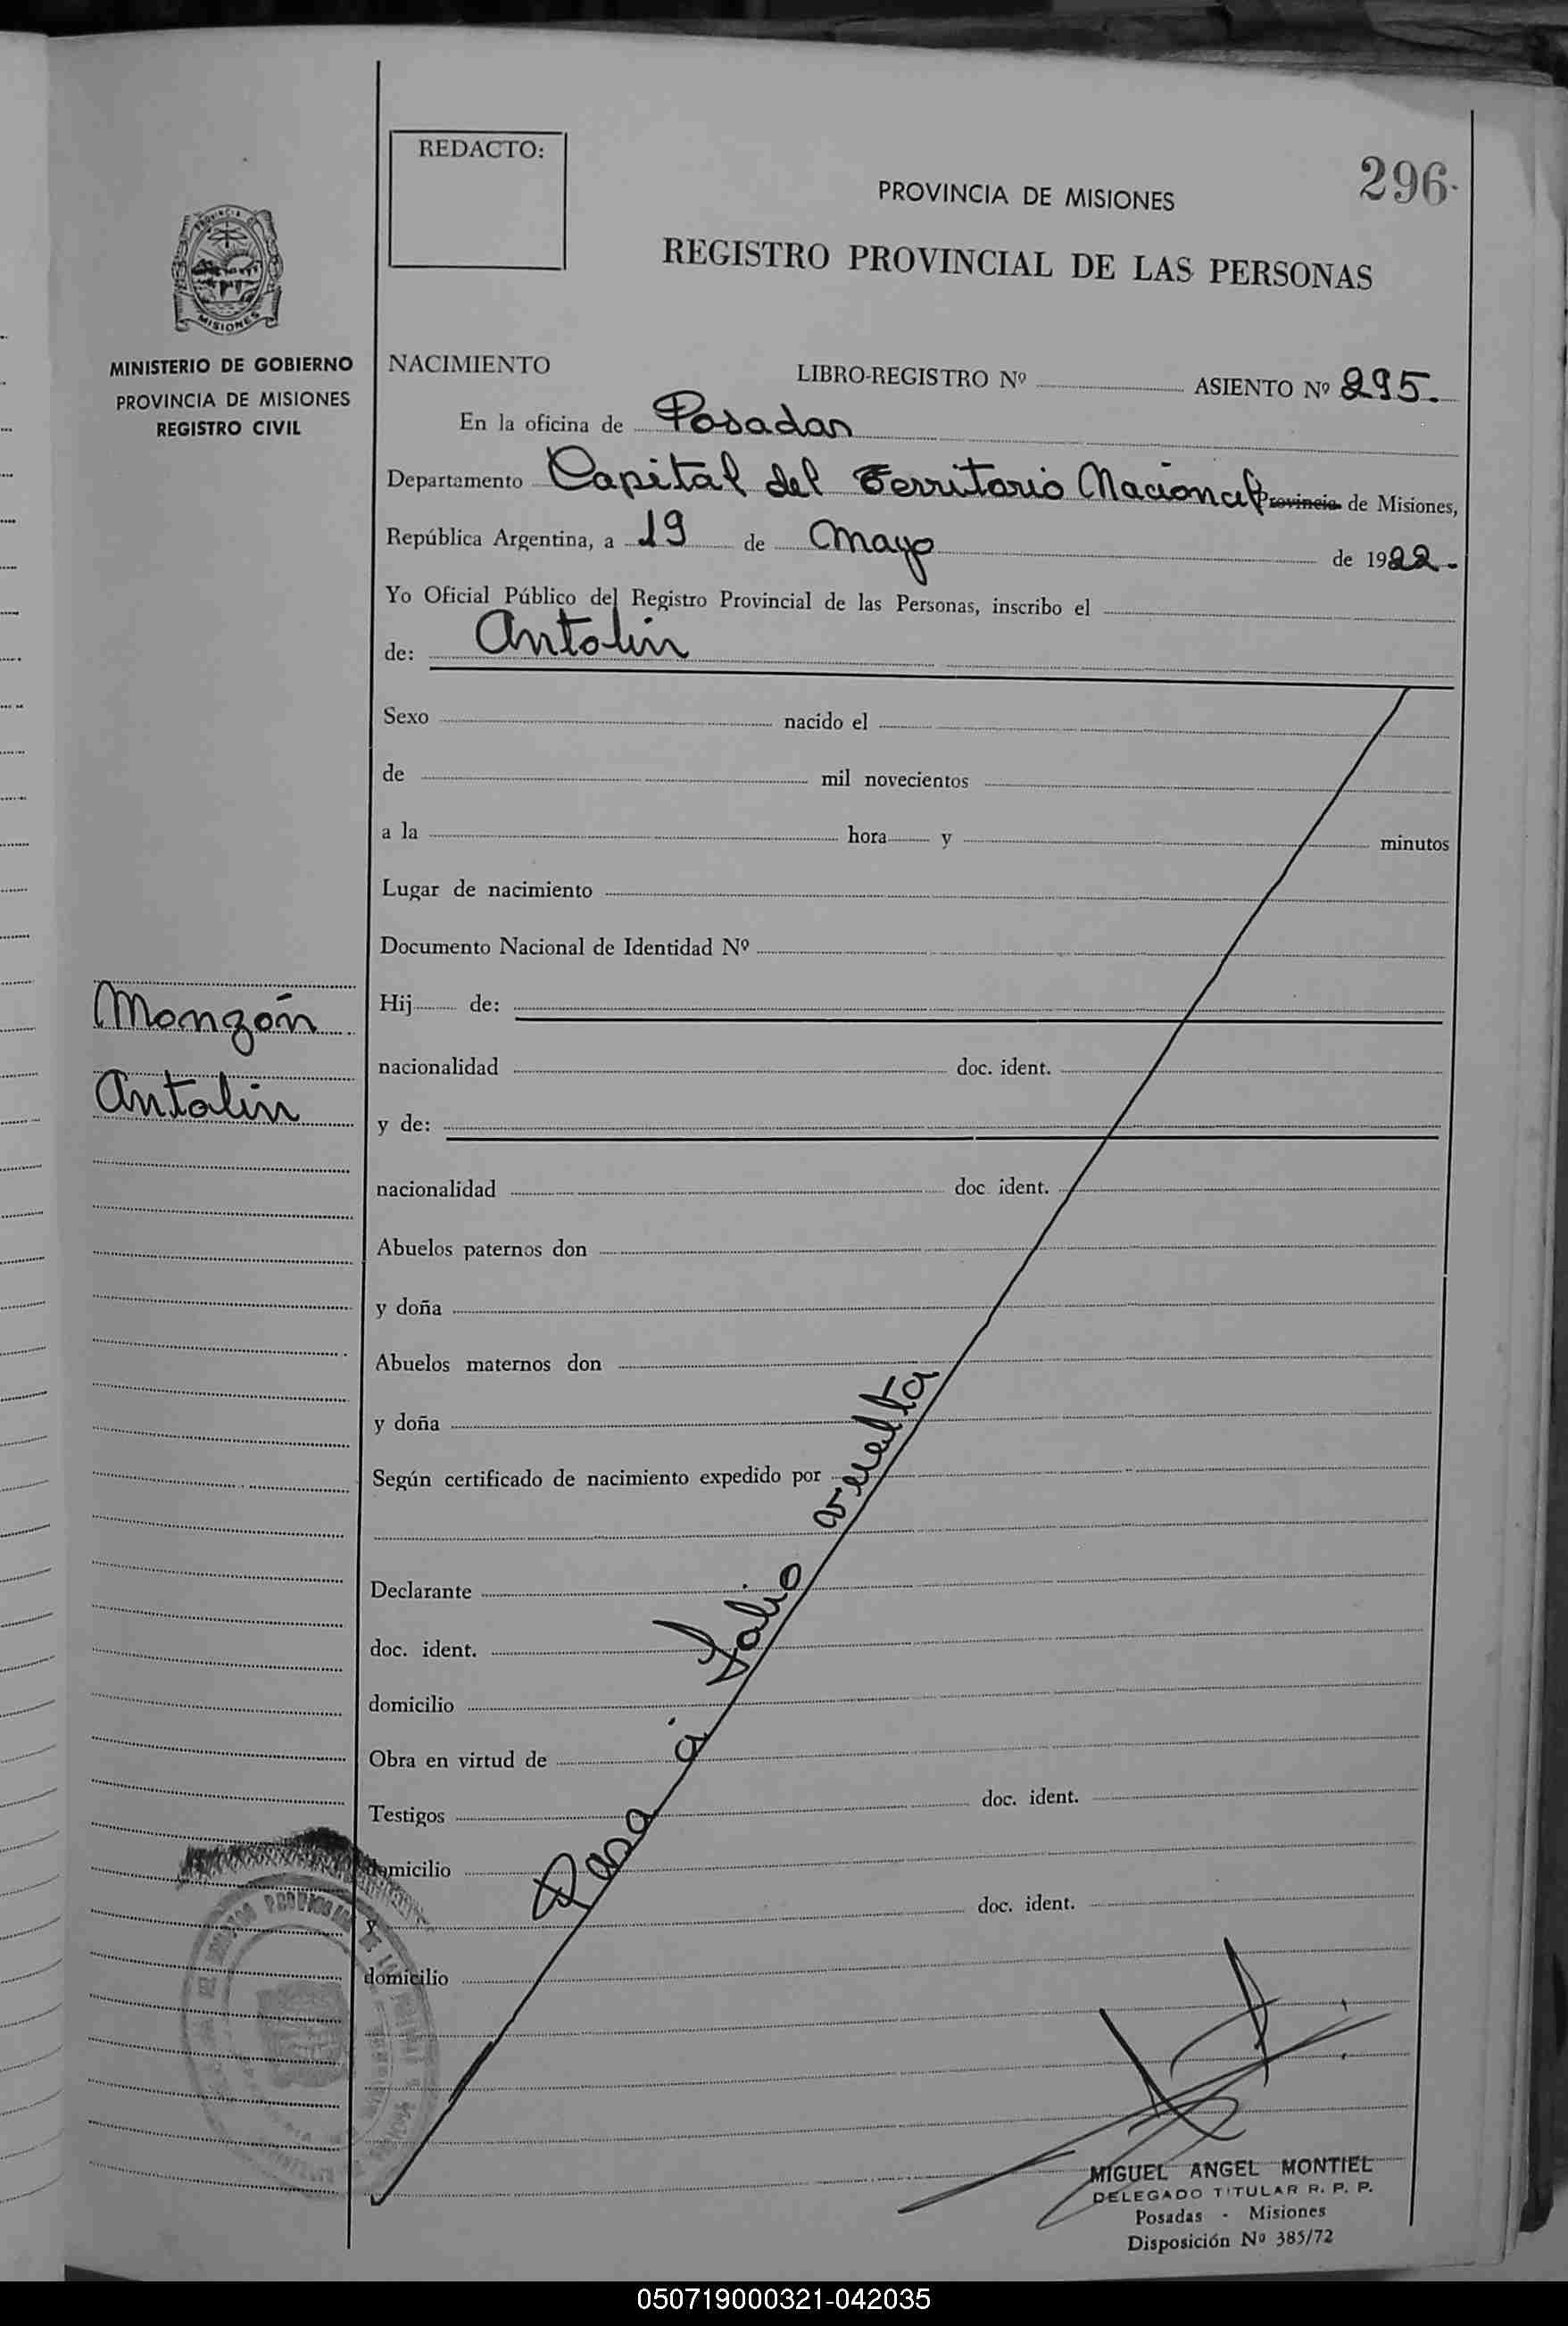 REDACTO:
296.
PROVINCIA DE MISIONES
REGISTRO PROVINCIAL DE LAS PERSONAS
MISIONES
MINISTERIO DE GOBIERNO
PROVINCIA DE MISIONES
REGISTRO CIVIL
NACIMIENTO LIBRO-REGISTRO Nº ASIENTO Nº 295.
En la oficina de Posadas
Departamento Capital del Territorio Nacional Provincia de Misiones,
República Argentina, a 19 de Mayo de 1922.
Yo Oficial Público del Registro Provincial de las Personas, inscribo el
de: Antolin
Sexo nacido el
de mil novecientos
a la hora y minutos
Lugar de nacimiento
Documento Nacional de Identidad Nº
Monzón
Antolin
Hij de:
nacionalidad doc. ident.
y de:
nacionalidad doc ident.
Abuelos paternos don
y doña
Abuelos maternos don
y doña
Según certificado de nacimiento expedido por
Declarante
doc. ident.
domicilio
Obra en virtud de
Testigos doc. ident.
domicilio
y doc. ident.
domicilio
Pasa a folio vuelta
MIGUEL ANGEL MONTIEL
DELEGADO TITULAR R. P. P.
Posadas - Misiones
Disposición Nº 385/72
050719000321-042035